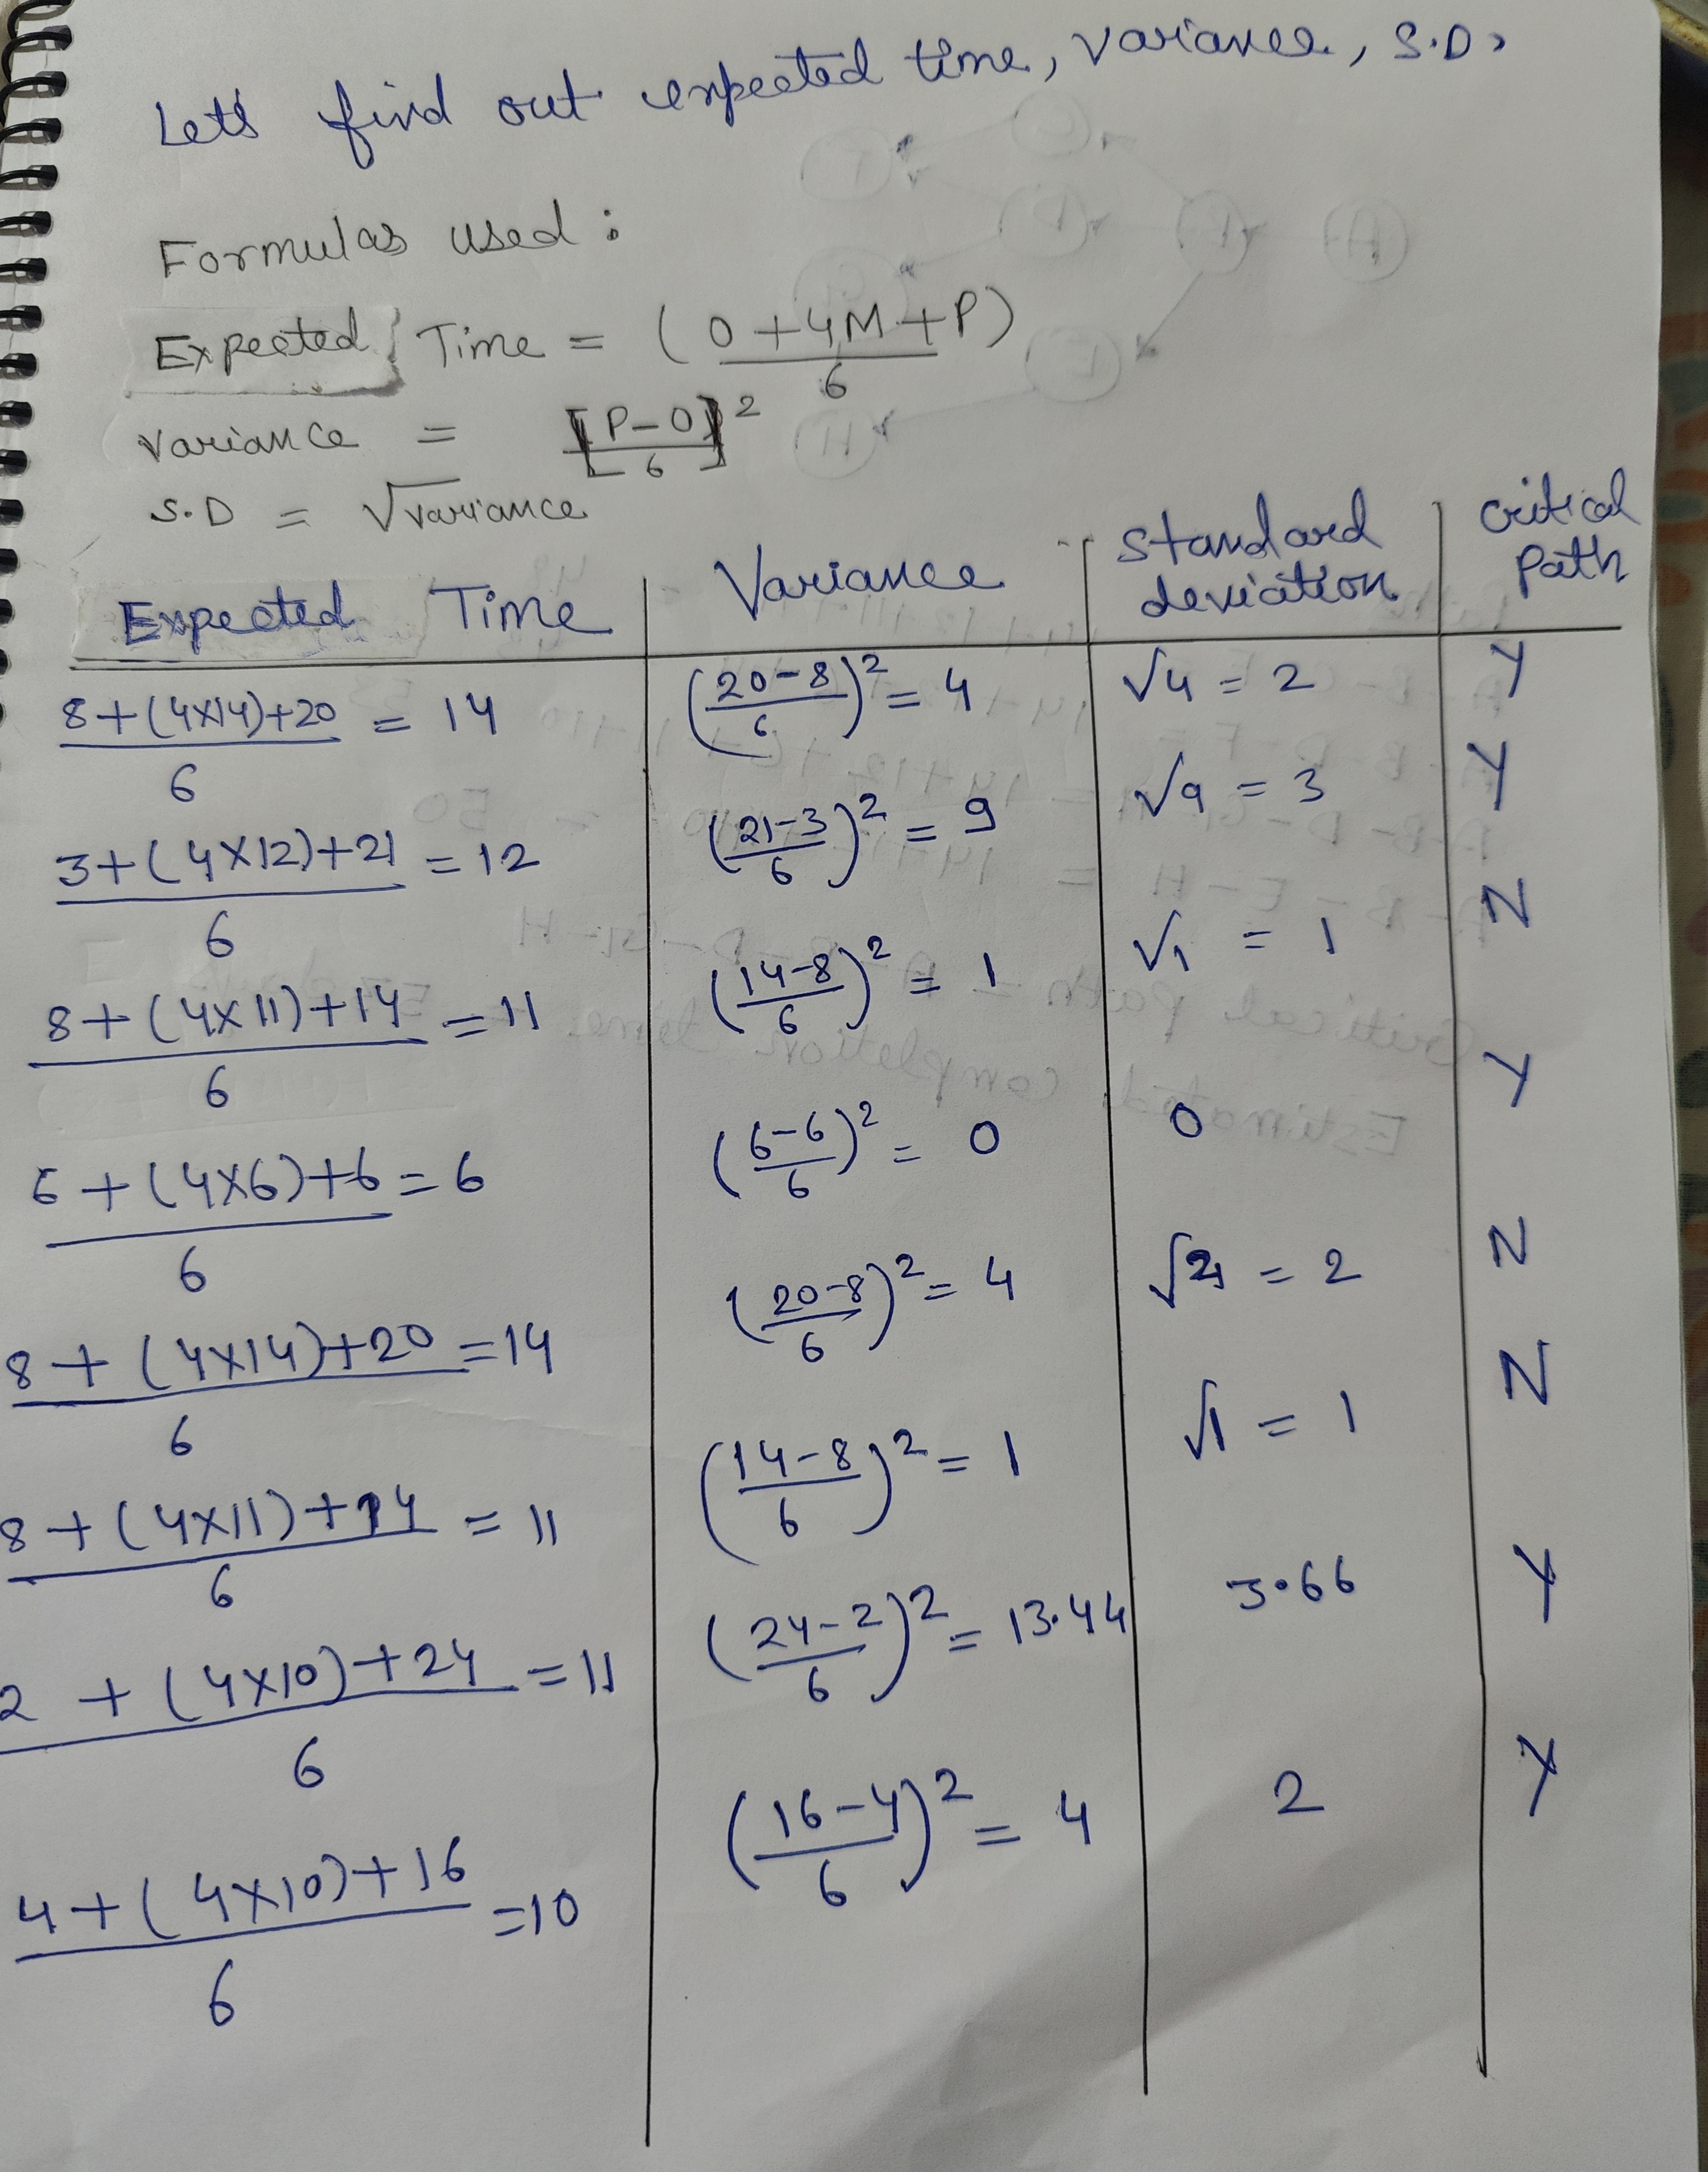 Let's find out expected time, variance, S.D,
Formulas used :
Expected Time = (O + 4M + P)
6
Variance = [P-O]²
6
S.D = √variance
Expected Time | Variance | Standard deviation | Critical Path
8+(4×14)+20 = 14 (20-8)² = 4 √4 = 2 Y
6 6
3+(4×12)+21 = 12 (21-3)² = 9 √9 = 3 Y
6 6
8+(4×11)+14 = 11 (14-8)² = 1 √1 = 1 N
6 6
6+(4×6)+6 = 6 (6-6)² = 0 0 Y
6 6
8+(4×14)+20 = 14 (20-8)² = 4 √4 = 2 N
6 6
8+(4×11)+14 = 11 (14-8)² = 1 √1 = 1 N
6 6
2+(4×10)+24 = 11 (24-2)² = 13.44 3.66 Y
6 6
4+(4×10)+16 = 10 (16-4)² = 4 2 Y
6 6